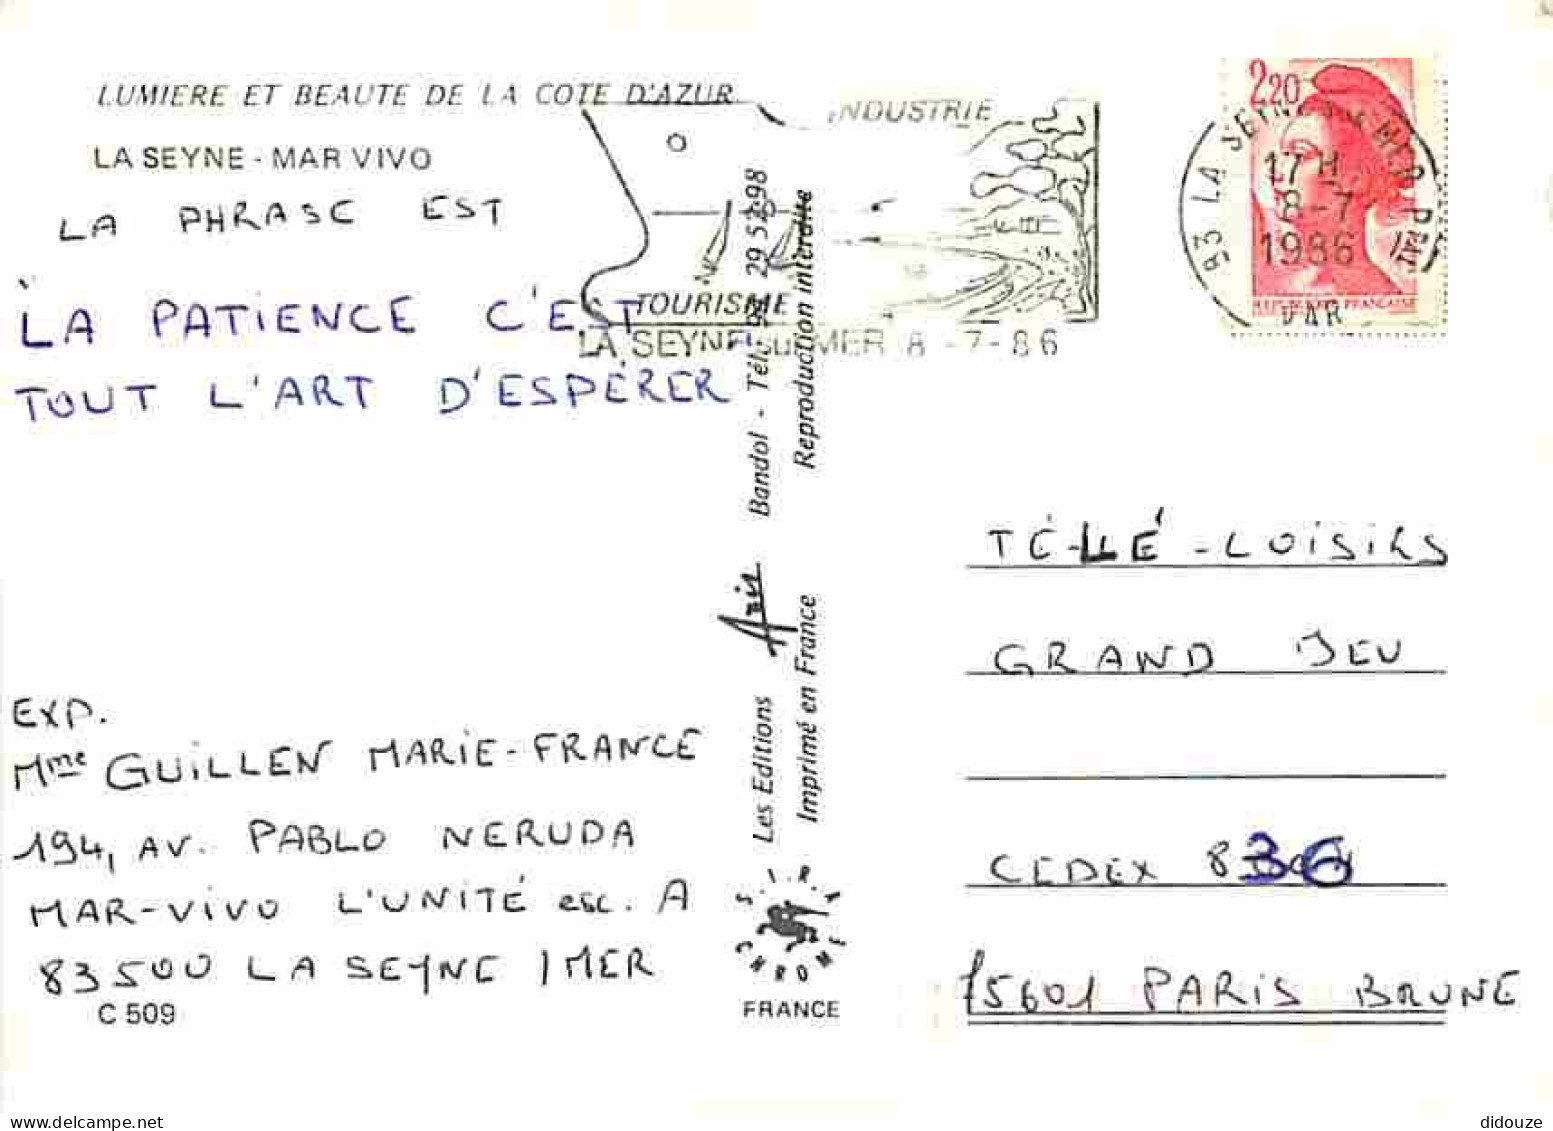 LUMIERE ET BEAUTE DE LA COTE D'AZUR
LA SEYNE - MAR VIVO
LA PHRASE EST
LA PATIENCE C'EST
TOUT L'ART D'ESPÉRER
EXP.
Mme GUILLEN MARIE-FRANCE
194, AV. PABLO NERUDA
MAR-VIVO L'UNITÉ esc. A
83500 LA SEYNE / MER
C 509
INDUSTRIE
TOURISME
LA SEYNE sur MER 8 -7-86
Les Editions Aris Bandol - Tél. 94 29 52 98
Imprimé en France Reproduction interdite
S.I.R.A.
CHROME
FRANCE
2,20
REPUBLIQUE FRANCAISE
83 LA SEYNE S MER PPAL
17 H
8-7
1986
VAR
TÉ-LÉ-LOISIRS
GRAND JEU
CEDEX 836
75601 PARIS BRUNE
didouze